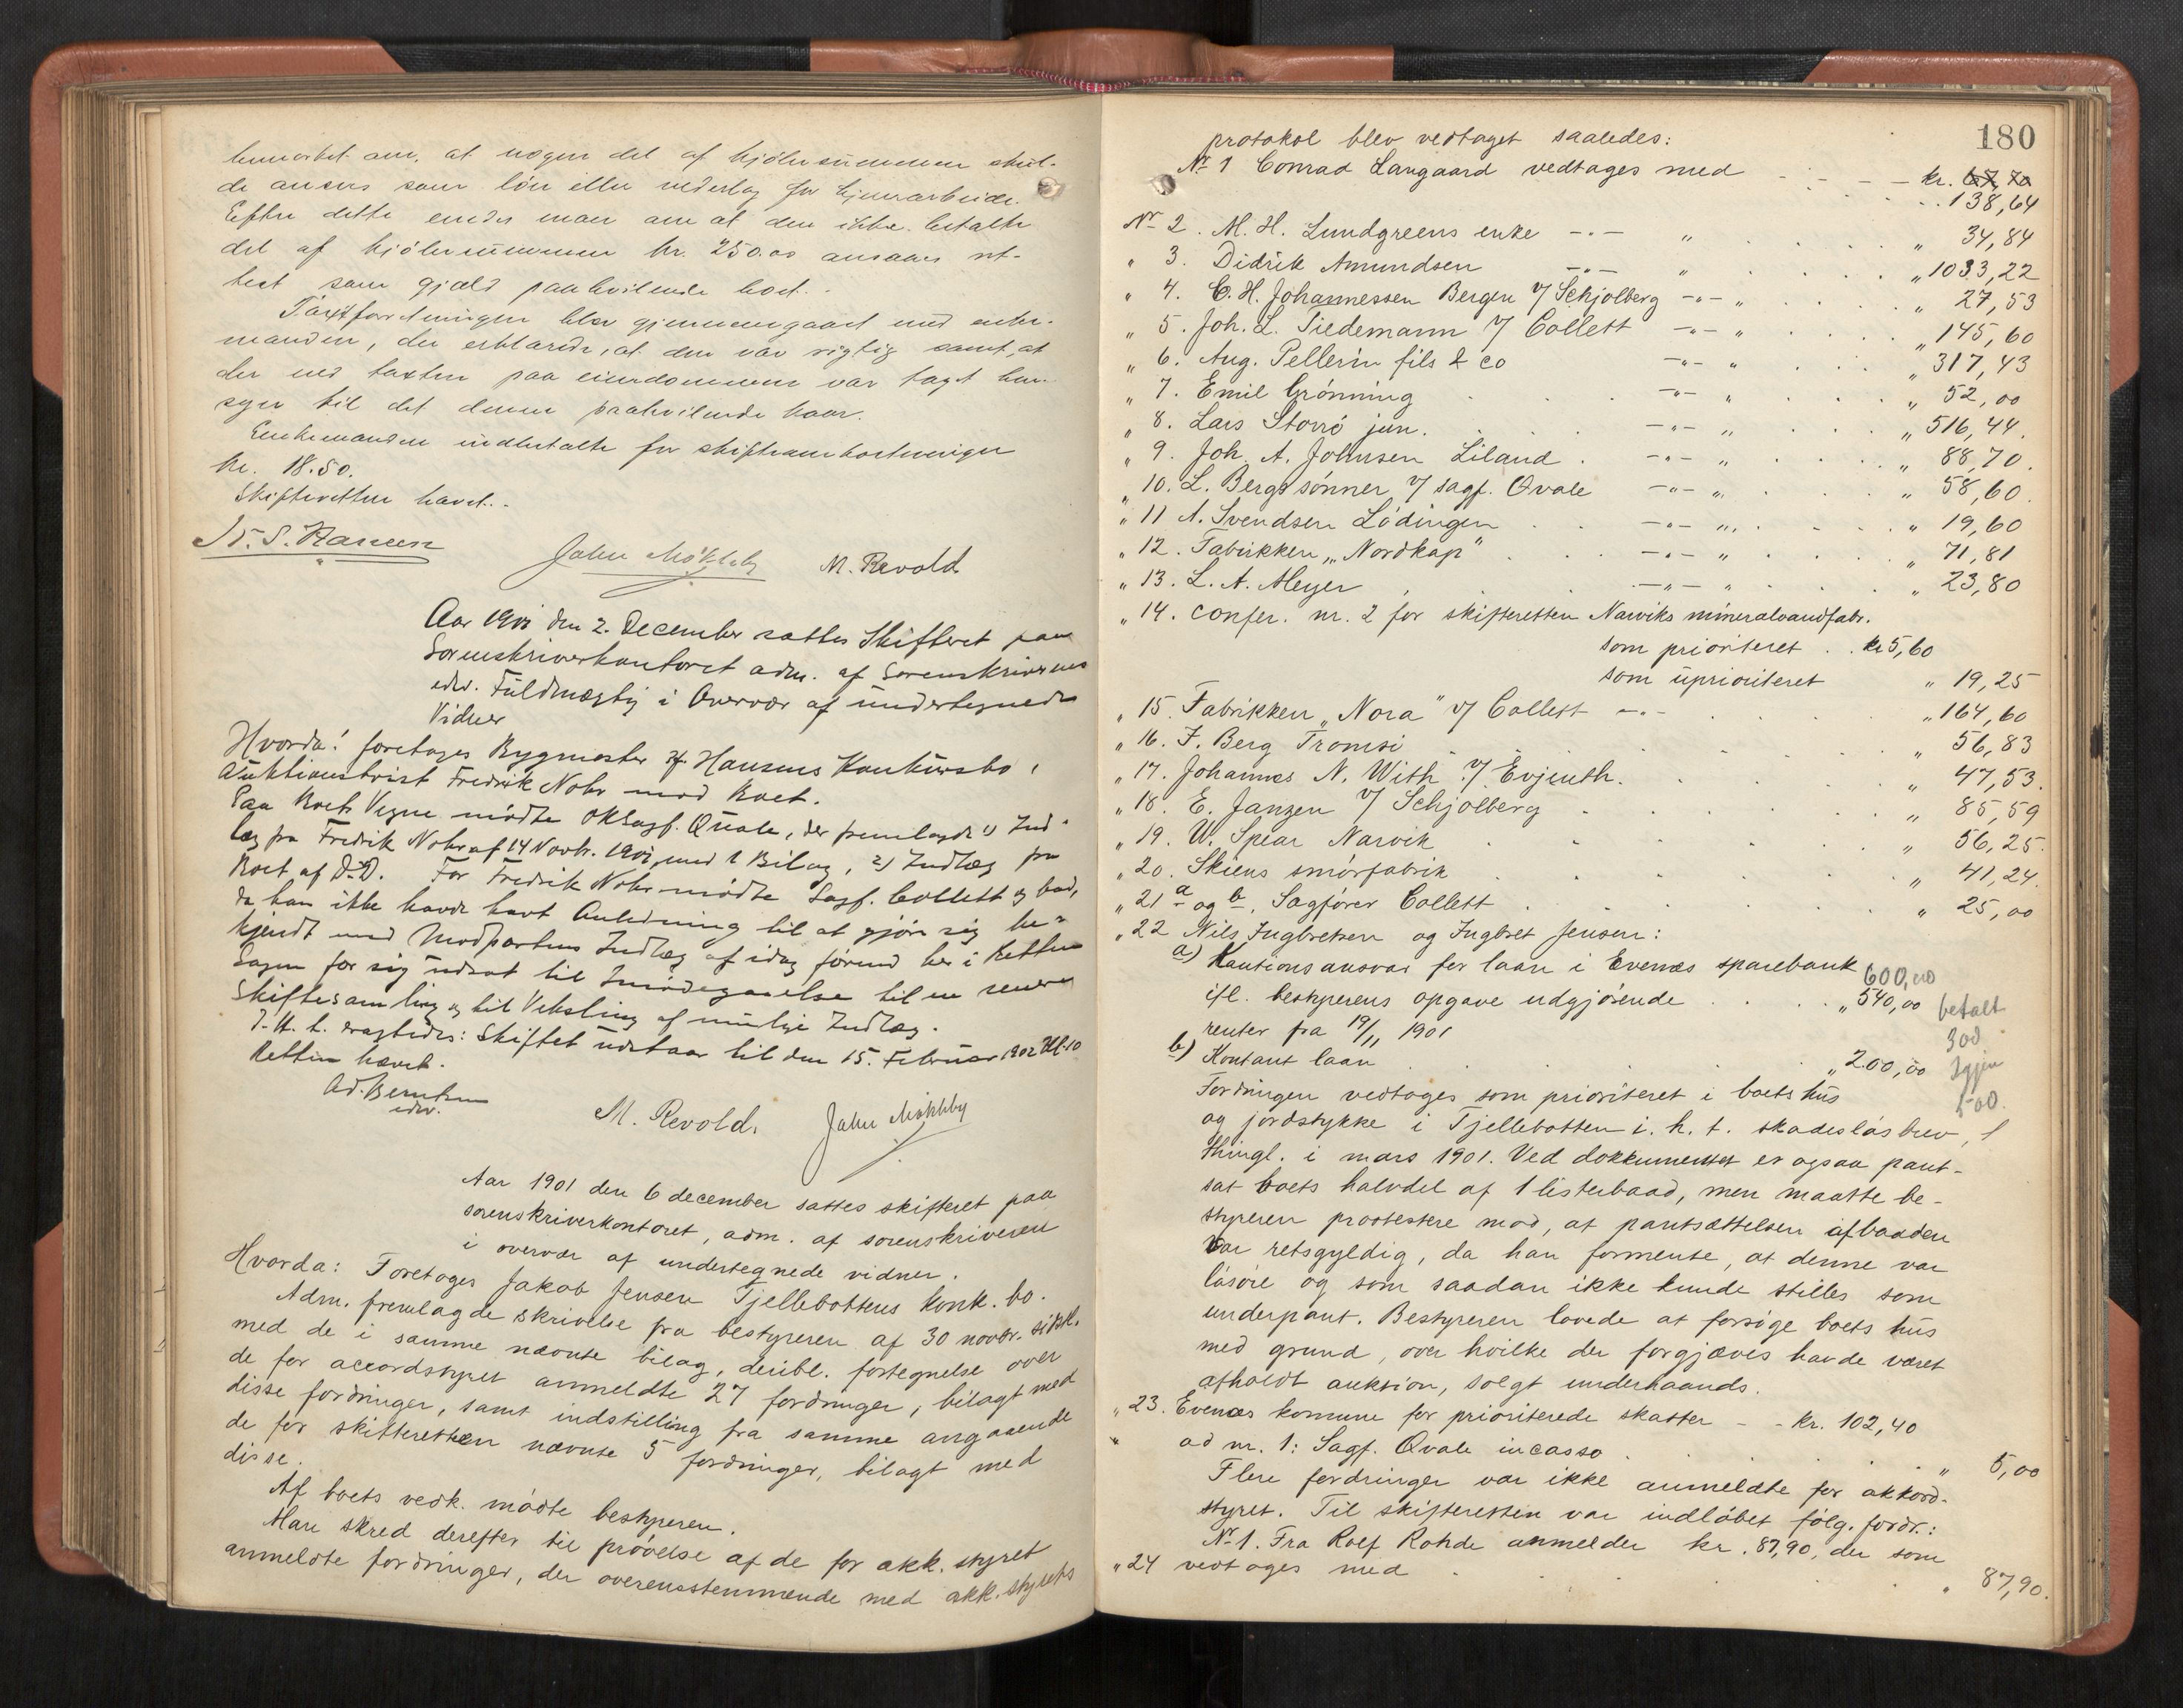 bemærket om, at nogen del af kjøbesummen skul-
de ansees som løn eller vederlag for hjemarbeide.
Efter dette enedes man om at den ikke betalte
del af kjøbesummen kr. 250.00 ansaaes ut-
hest som gjæld paahvilende boet.
Taxtforretningen blev gjennemgaaet med enke-
manden, der erklærede, at den var rigtig samt, at
der ved taxten paa eiendommen var tagt hen-
syn til det denne paahvilende kaar.
Enkemanden indbetalte for skifteomkostninger
kr. 18.50.
Skifteretten hævet.
N. S. Hansen
John Mökleby M. Revold
Aar 1901 den 2. December sattes Skifteret paa
Sorenskriverkontoret adm. af Sorenskriverens
edsv. Fuldmægtig i Overvær af undertegnede
Vidner
Hvorda: foretages Bygmester Hansens Konkursbo,
Auktionstvist Fredrik Nohr mod Boet.
Paa Boets Vegne mødte OKSagf. Qvale, der fremlagde 1) Ind-
læg fra Fredrik Nohr af 14 Novbr. 1901, med 1 Bilag, 2) Indlæg fra
Boet af D.D. For Fredrik Nohr mødte Sagf. Collett og bad,
da han ikke havde havt Anledning til at gjøre sig be-
kjendt med Modpartens Indlæg af idag førend her i Retten
Sagen for sig udsat til Imødegaaelse til en senere
Skiftesamling og til Veksling af mulige Indlæg.
I. H. t. vragtedes: Skiftet udstaar til den 15. Februar 1902 Kl. 10
Retten hævet.
Ad. Berntsen
edsv.
M. Revold. John Mökleby
Aar 1901 den 6 december sattes skifteret paa
sorenskriverkontoret, adm. af sorenskriveren
i overvær af undertegnede vidner.
Hvorda: Foretoges Jakob Jensen Tjellebottens konk. bo.
Adm. fremlagde skrivelse fra bestyreren af 30 novbr. sidstl.
med de i samme nævnte bilag, deribl. fortegnelse over
de for accordstyret anmeldte 27 fordringer, bilagt med
disse fordringer, samt indstilling fra samme angaaende
de for skifteretten nævnte 5 fordringer, bilagt med
disse.
Af boets vedk. mødte bestyreren.
Man skred derefter til prøvelse af de for akk. styret
anmeldte fordringer, der overensstemmende med akk. styrets
180
protokol blev vedtaget saaledes:
Nr 1 Conrad Langaard vedtages med - - - - kr. 67,70
138,64
Nr 2. M. H. Lundgreens enke -"- " . . . " 34,84
" 3. Didrik Amundsen -"- " . . . " 1033,22
" 4. C. H. Johannessen Bergen v/ Schjølberg -"- " . . . " 27,53
" 5. Joh. L. Tiedemann v/ Collett -"- " . . . " 145,60
" 6. Aug. Pellerin fils & co -"- " . . . " 317,43
" 7. Emil Grønning -"- " . . . " 52,00
" 8. Lars Storrø jun. -"- " . . . " 516,44.
" 9. Joh. A. Johnsen Liland . -"- " . . . " 88,70.
" 10. L. Bergs sønner v/ sagf. Qvale -"- " . . . " 58,60.
" 11 A. Svendsen Lödingen -"- " . . . " 19,60
" 12. Fabrikken „Nordkap" -"- " . . . " 71,81
" 13. L. A. Meyer -"- " . . . " 23,80
" 14. confer. nr. 2 for skifteretten Narviks mineralvandfabr.
som prioriteret . . kr 5,60
som uprioriteret " 19,25
" 15. Fabrikken „Nora" v/ Collett -"- . . . " 164,60
" 16. J. Berg Tromsö . . . " 56,83
" 17. Johannes N. With v/ Evjenth. . . . " 47,53.
" 18. E. Janzen v/ Schjølberg . . . " 85,59
" 19. W. Spear Narvik . . . " 56,25.
" 20. Skiens smörfabrik . . . " 41,24.
" 21 a og b. Sagfører Collett . . . " 25,00
" 22 Nils Ingbretsen og Ingbret Jensen:
a) Kautionsansvar for laan i Evenæs sparebank 600,00
ifl. bestyrerens opgave udgjørende . . . " 540,00 betalt
renter fra 19/11 1901 300
b) Kontant laan . . . " 200,00 igjen
Fordringen vedtages som prioriteret i boets hus 500.
og jordstykke i Tjellebotten i. h. t. skadesløsbrev,
thingl. i mars 1901. Ved dokkumentet er ogsaa pant-
sat boets halvdel af 1 listerbaad, men maatte be-
styreren prostestere mod, at pantsættelsen af baaden
var retsgyldig, da han formente, at denne var
løsøre og som saadan ikke kunde stilles som
underpant. Bestyreren lovede at forsøge boets hus
med grund, over hvilke der forgjæves havde været
afholdt auktion, solgt underhaands.
" 23. Evenæs komune for prioriterede skatter - - kr. 102,40
" ad nr. 1: Sagf. Qvale incasso . . . " 5,00
Flere fordringer var ikke anmeldte for akkord-
styret. Til skifteretten var indløbet følg. fordr.:
Nr 1. Fra Rolf Rohde anmelder kr. 87,90, der som
" 24 vedtages med . . . " 87,90.